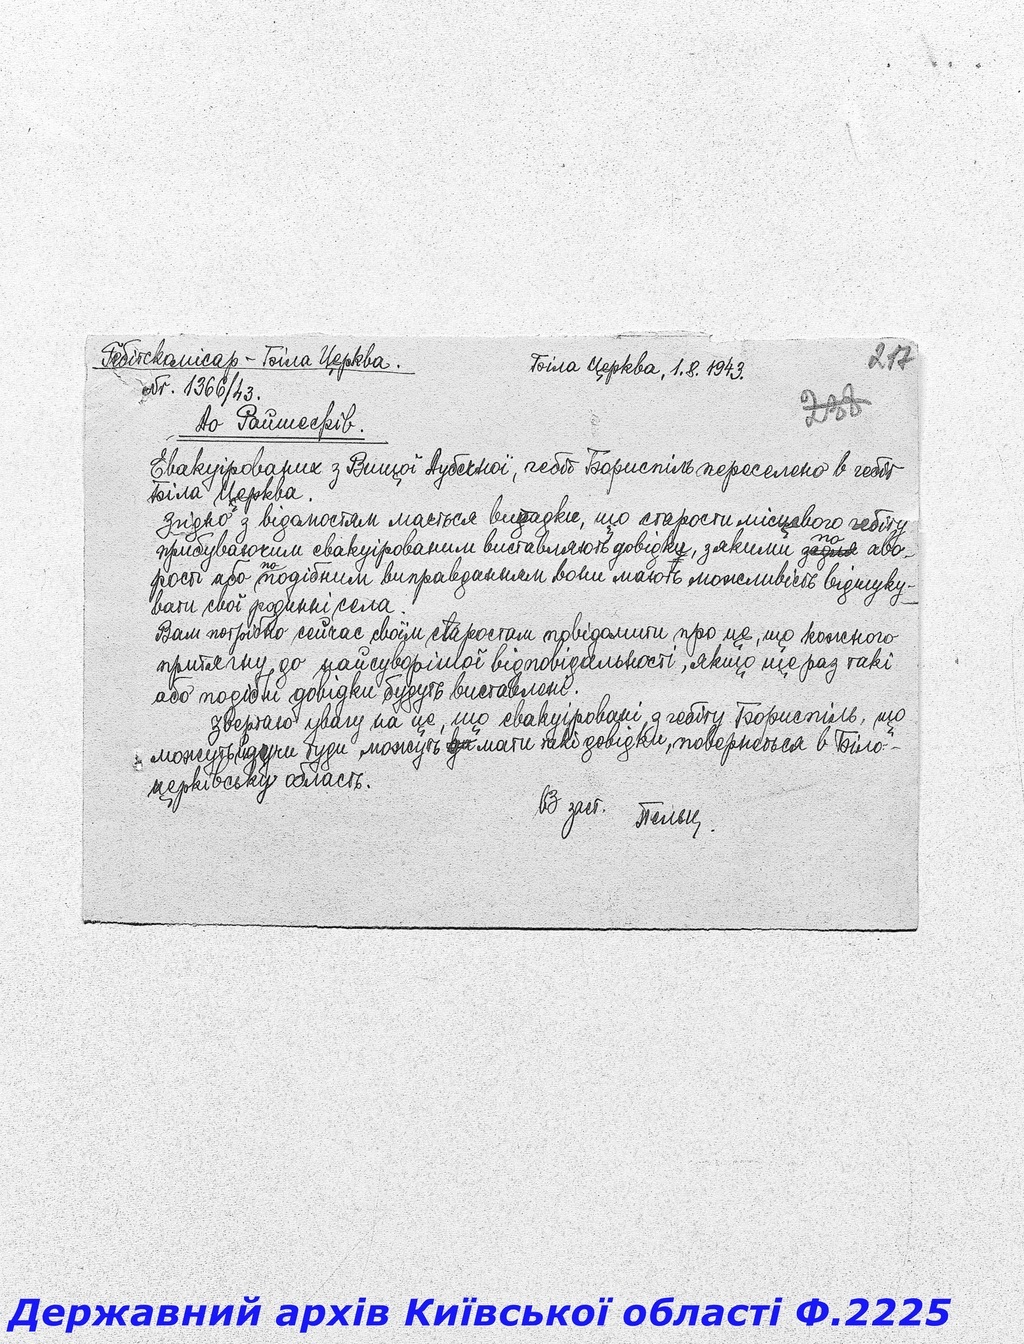 Гебітскомісар – Біла Церква.
Біла Церква, 1.8.1943.
217
Nr. 1366/43.
238
До Райшефів.
Евакуірованих з Вищої Дубечної, гебіт Бориспіль переселено в гебіт
Біла Церква.
Згідно з відомостям мається випадки, що старости місцевого гебіту
прибуваючим евакуірованим виставляють довідки, з якими по хво-
рості або по подібним виправданням вони мають можливість відшуку-
вати свої родинні села.
Вам потрібно сейчас своїм старостам повідомити про це, що кожного
притягну до найсуворішої відповідальності, якщо ще раз такі
або подібні довідки будуть виставлені.
Звертаю увагу на це, що евакуіровані з гебіту Бориспіль, що
можуть ідучи туди, можуть мати такі довідки, повернеться в Біло-
церківську область.
В заст. Пельц.
Державний архів Київської області Ф.2225